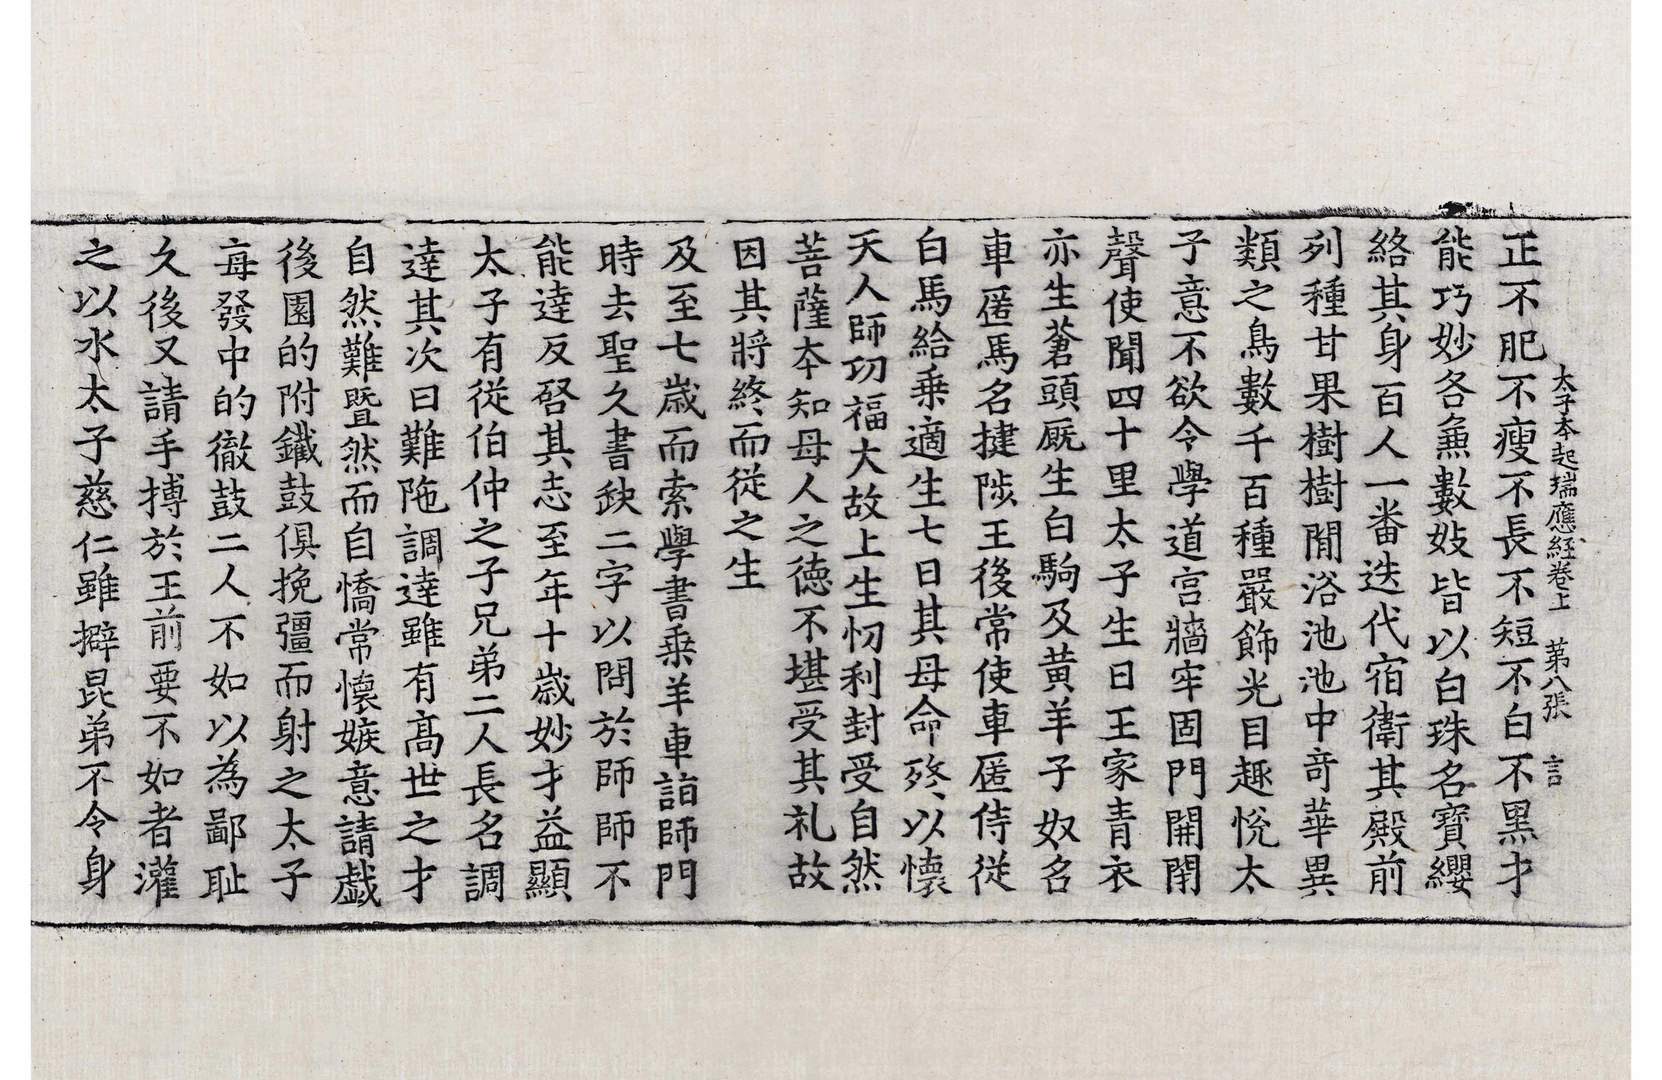 太子本起瑞應經卷上　第八張　言
正不肥不瘦不長不短不白不黑才
能巧妙各兼數妓皆以白珠名寶纓
絡其身百人一番迭代宿衛其殿前
列種甘果樹樹間浴池池中竒華異
類之鳥數千百種嚴飾光目趣悅太
子意不欲令學道宫牆牢固門開閉
聲使聞四十里太子生日王家青衣
亦生蒼頭厩生白駒及黃羊子奴名
車匿馬名揵陟王後常使車匿侍從
白馬給乗適生七日其母命終以懷
天人師功福大故上生忉利封受自然
菩薩本知母人之德不堪受其礼故
因其將終而從之生
及至七歲而索學書乗羊車詣師門
時去聖久書缺二字以問於師師不
能達反啓其志至年十歲妙才益顯
太子有從伯仲之子兄弟二人長名調
達其次曰難陁調達雖有高世之才
自然難暨然而自憍常懷嫉意請戲
後園的附鐵鼓俱挽彊而射之太子
每發中的徹鼓二人不如以為鄙恥
久後又請手搏於王前要不如者灌
之以水太子慈仁雖擗昆弟不令身